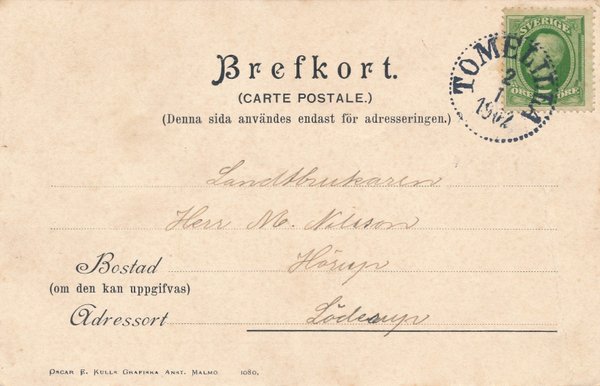 Brefkort.
(CARTE POSTALE.)
(Denna sida användes endast för adresseringen.)
SVERIGE
ÖRE ÖRE
TOMELILLA
2
1
1902
Landtbrukaren
Herr M. Nilsson
Bostad Hörup
(om den kan uppgifvas)
Adressort Löderup
OSCAR E. KULLS GRAFISKA ANST. MALMÖ 1080.